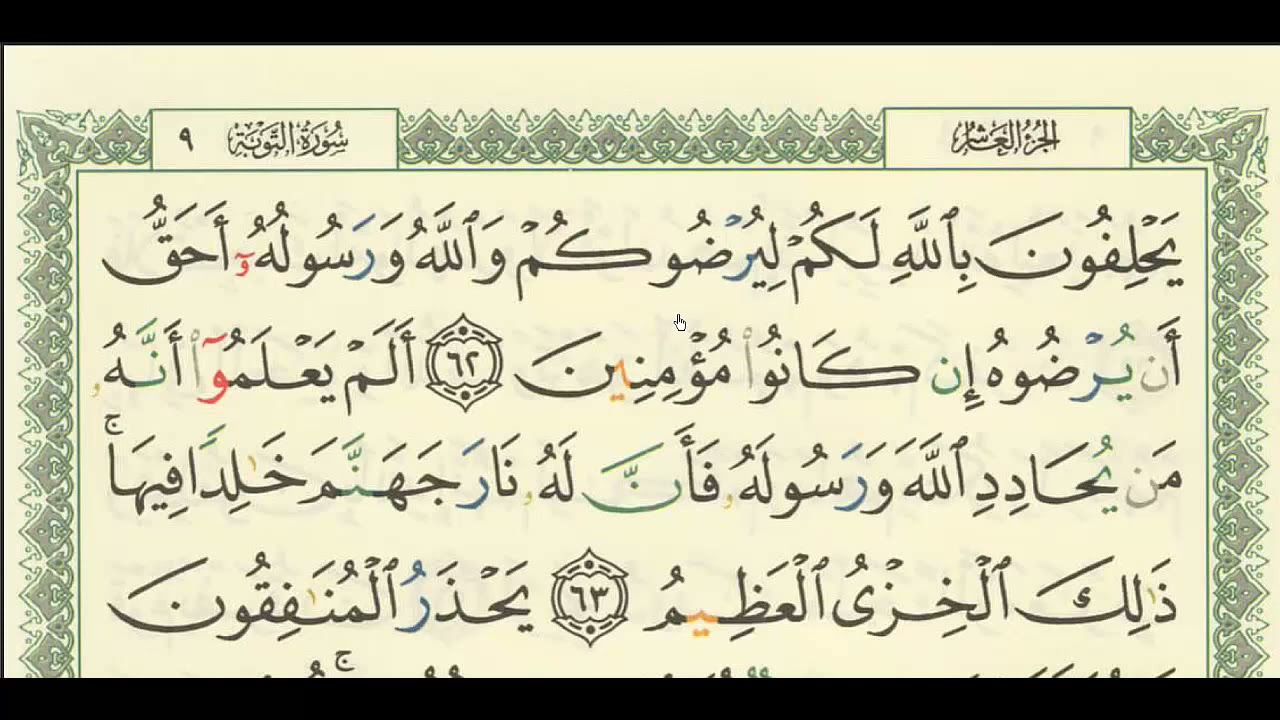 الجزء العاشر
سورة التوبة ٩
يَحْلِفُونَ بِٱللَّهِ لَكُمْ لِيُرْضُوكُمْ وَٱللَّهُ وَرَسُولُهُۥٓ أَحَقُّ
أَن يُرْضُوهُ إِن كَانُوا۟ مُؤْمِنِينَ ٦٢ أَلَمْ يَعْلَمُوٓا۟ أَنَّهُۥ
مَن يُحَادِدِ ٱللَّهَ وَرَسُولَهُۥ فَأَنَّ لَهُۥ نَارَ جَهَنَّمَ خَـٰلِدًا فِيهَا ۚ
ذَٰلِكَ ٱلْخِزْىُ ٱلْعَظِيمُ ٦٣ يَحْذَرُ ٱلْمُنَـٰفِقُونَ